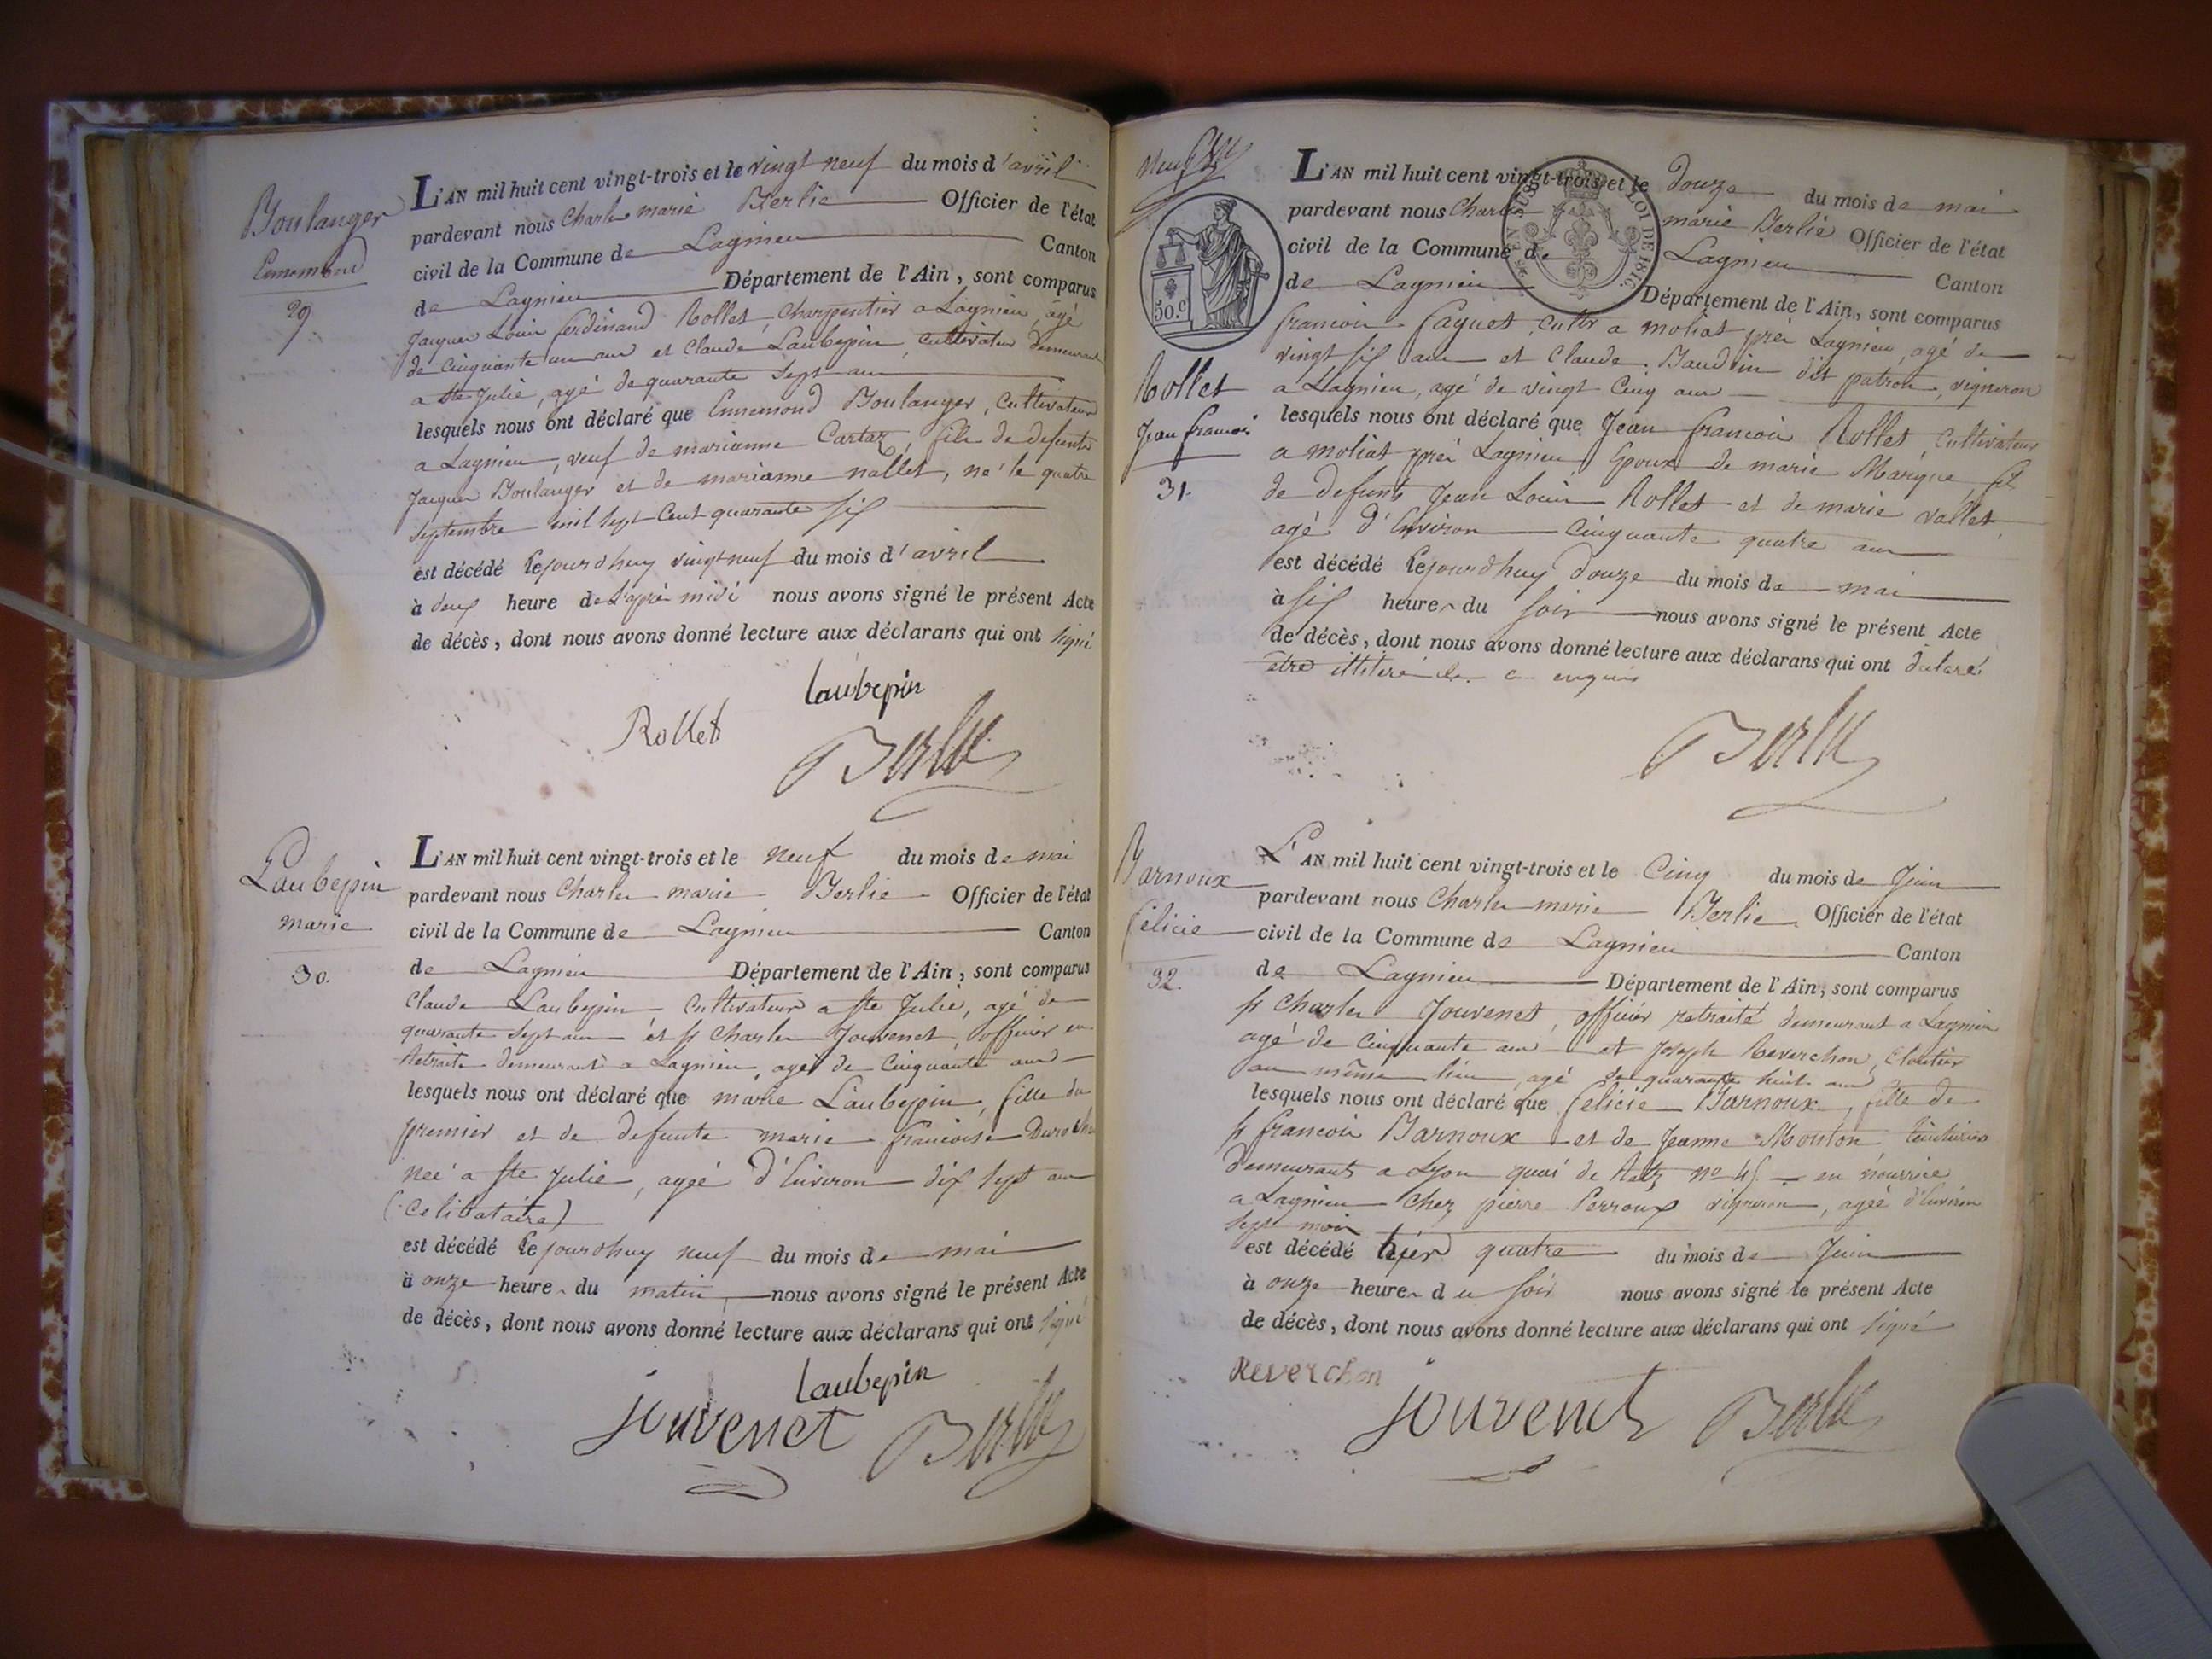 Boulanger
Ennemond
29
L'AN mil huit cent vingt-trois et le vingt neuf du mois d'avril
pardevant nous Charles marie Berlie Officier de l'état
civil de la Commune de Lagnieu Canton
de Lagnieu Département de l'Ain, sont comparus
Jacques Louis ferdinand Rollet, Charpentier a Lagnieu, agé
de Cinquante un ans et Claude Laubepin, Cultivateur demeurant
a Ste Julie, agé de quarante sept ans
lesquels nous ont déclaré que Ennemond Boulanger, Cultivateur
a Lagnieu, veuf de marianne Cartaz, fils de defunts
Jacques Boulanger et de marianne nallet, né le quatre
septembre mil sept Cent quarante six
est décédé cejourdhuy vingt neuf du mois d'avril
à deux heure de l'aprés midi nous avons signé le présent Acte
de décès, dont nous avons donné lecture aux déclarans qui ont signé
Laubepin
Rollet
Berlie
Laubepin
marie
30.
L'AN mil huit cent vingt-trois et le neuf du mois de mai
pardevant nous Charles marie Berlie Officier de l'état
civil de la Commune de Lagnieu Canton
de Lagnieu Département de l'Ain, sont comparus
Claude Laubepin Cultivateur a Ste Julie, agé de
quarante sept ans et sr Charles Jouvenet, officier en
Retraite demeurant a Lagnieu, agé de Cinquante ans
lesquels nous ont déclaré que marie Laubepin, fille du
premier et de defunte marie francoise
neé a Ste Julie, ageé d'Environ dix sept ans
(Celibataire)
est décédé cejourdhuy neuf du mois de mai
à onze heures du matin, nous avons signé le présent Acte
de décès, dont nous avons donné lecture aux déclarans qui ont signé
Laubepin
Jouvenet Berlie
50.C
LOI DE 1816.
Rollet
Jean francois
31.
L'AN mil huit cent vingt-trois et le douze du mois de mai
pardevant nous Charles marie Berlie Officier de l'état
civil de la Commune de Lagnieu Canton
de Lagnieu Département de l'Ain, sont comparus
francois faguet, cultr a moliat prés Lagnieu, agé de
vingt six ans et Claude Baudrin dit patron, vigneron
a Lagnieu, agé de vingt Cinq ans
lesquels nous ont déclaré que Jean francois Rollet, Cultivateur
a moliat prés Lagnieu Epoux de marie Marigue, fils
de defunts Jean Louis Rollet et de marie vallet,
agé d'Environ Cinquante quatre ans
est décédé cejourdhuy douze du mois de mai
à six heures du soir nous avons signé le présent Acte
de décès, dont nous avons donné lecture aux déclarans qui ont declaré
être illiteré de ce enquis
Berlie
Barnoux
félicie
32.
L'AN mil huit cent vingt-trois et le Cinq du mois de Juin
pardevant nous Charles marie Berlie Officier de l'état
civil de la Commune de Lagnieu Canton
de Lagnieu Département de l'Ain, sont comparus
sr Charles Jouvenet, officier retraité demeurant a Lagnieu
agé de Cinquante ans et Joseph Reverchon, Cloutier
au même lieu, agé de quarante huit ans
lesquels nous ont déclaré que félicie Barnoux, fille de
sr francois Barnoux et de Jeanne Mouton teinturier
demeurant a Lyon quai de Retz no 45 en nourrice
a Lagnieu Chez pierre Perroux vigneron, ageé d'Environ
sept mois
est décédé hier quatre du mois de Juin
à onze heures du soir nous avons signé le présent Acte
de décès, dont nous avons donné lecture aux déclarans qui ont signé
Reverchon
Jouvenet Berlie